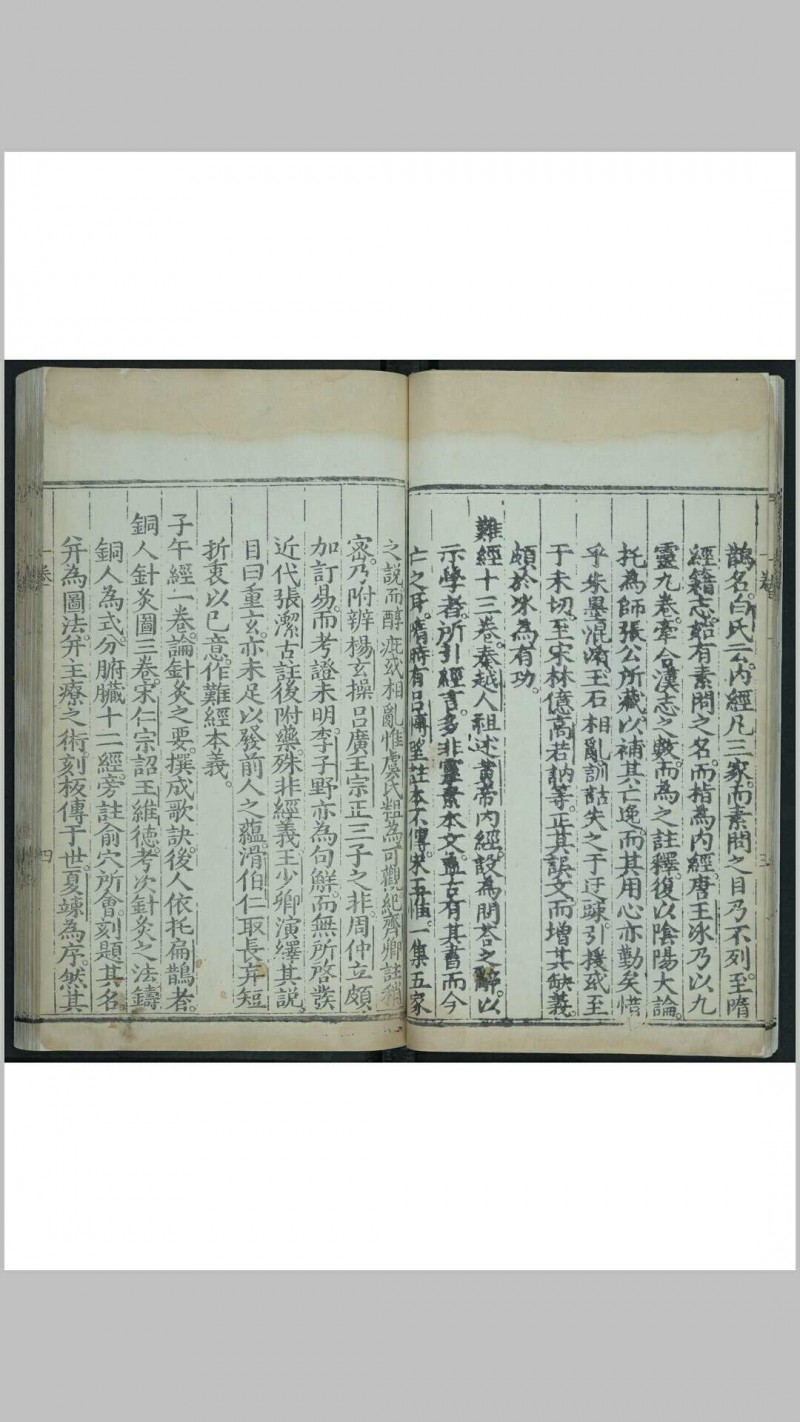 鵲名。白氏云。內經凡三家。而素問之目乃不列。至隋
經籍志。始有素問之名。而指為內經。唐王冰乃以九
靈九卷。牽合漢志之數。而為之註釋。復以陰陽大論。
托為師張公所藏。以補其亡逸。而其用心亦勤矣。惜
乎朱墨混殽。玉石相亂。訓詁失之于迂疎。引援或至
于未切。至宋林億高若訥等。正其誤文。而增其缺義。
頗於冰為有功。
難經十三卷。秦越人祖述黃帝內經。設為問荅之辭。以
示學者。所引經言。多非靈素本文。蓋古有其書而今
亡之耳。隋時有呂博望註本不傳。宋王惟一集五家
之說而醇疵或相亂。惟虞氏粗為可觀。紀齊卿註稍
密。乃附辨楊玄操呂廣王宗正三子之非。周仲立頗
加訂易。而考證未明。李子野亦為句解。而無所啓發
近代張潔古註後附藥。殊非經義。王少卿演繹其說。
目曰重玄。亦未足以發前人之蘊。滑伯仁取長弃短
折衷以己意。作難經本義。
子午經一卷。論針灸之要。撰成歌訣。後人依托扁鵲者。
銅人針灸圖三卷。宋仁宗詔王維德。考次針灸之法。鑄
銅人為式。分腑臟十二經。旁註俞穴所會。刻題其名。
并為圖法。并主療之術。刻板傳于世。夏竦為序。然其
一卷
三
一卷
四